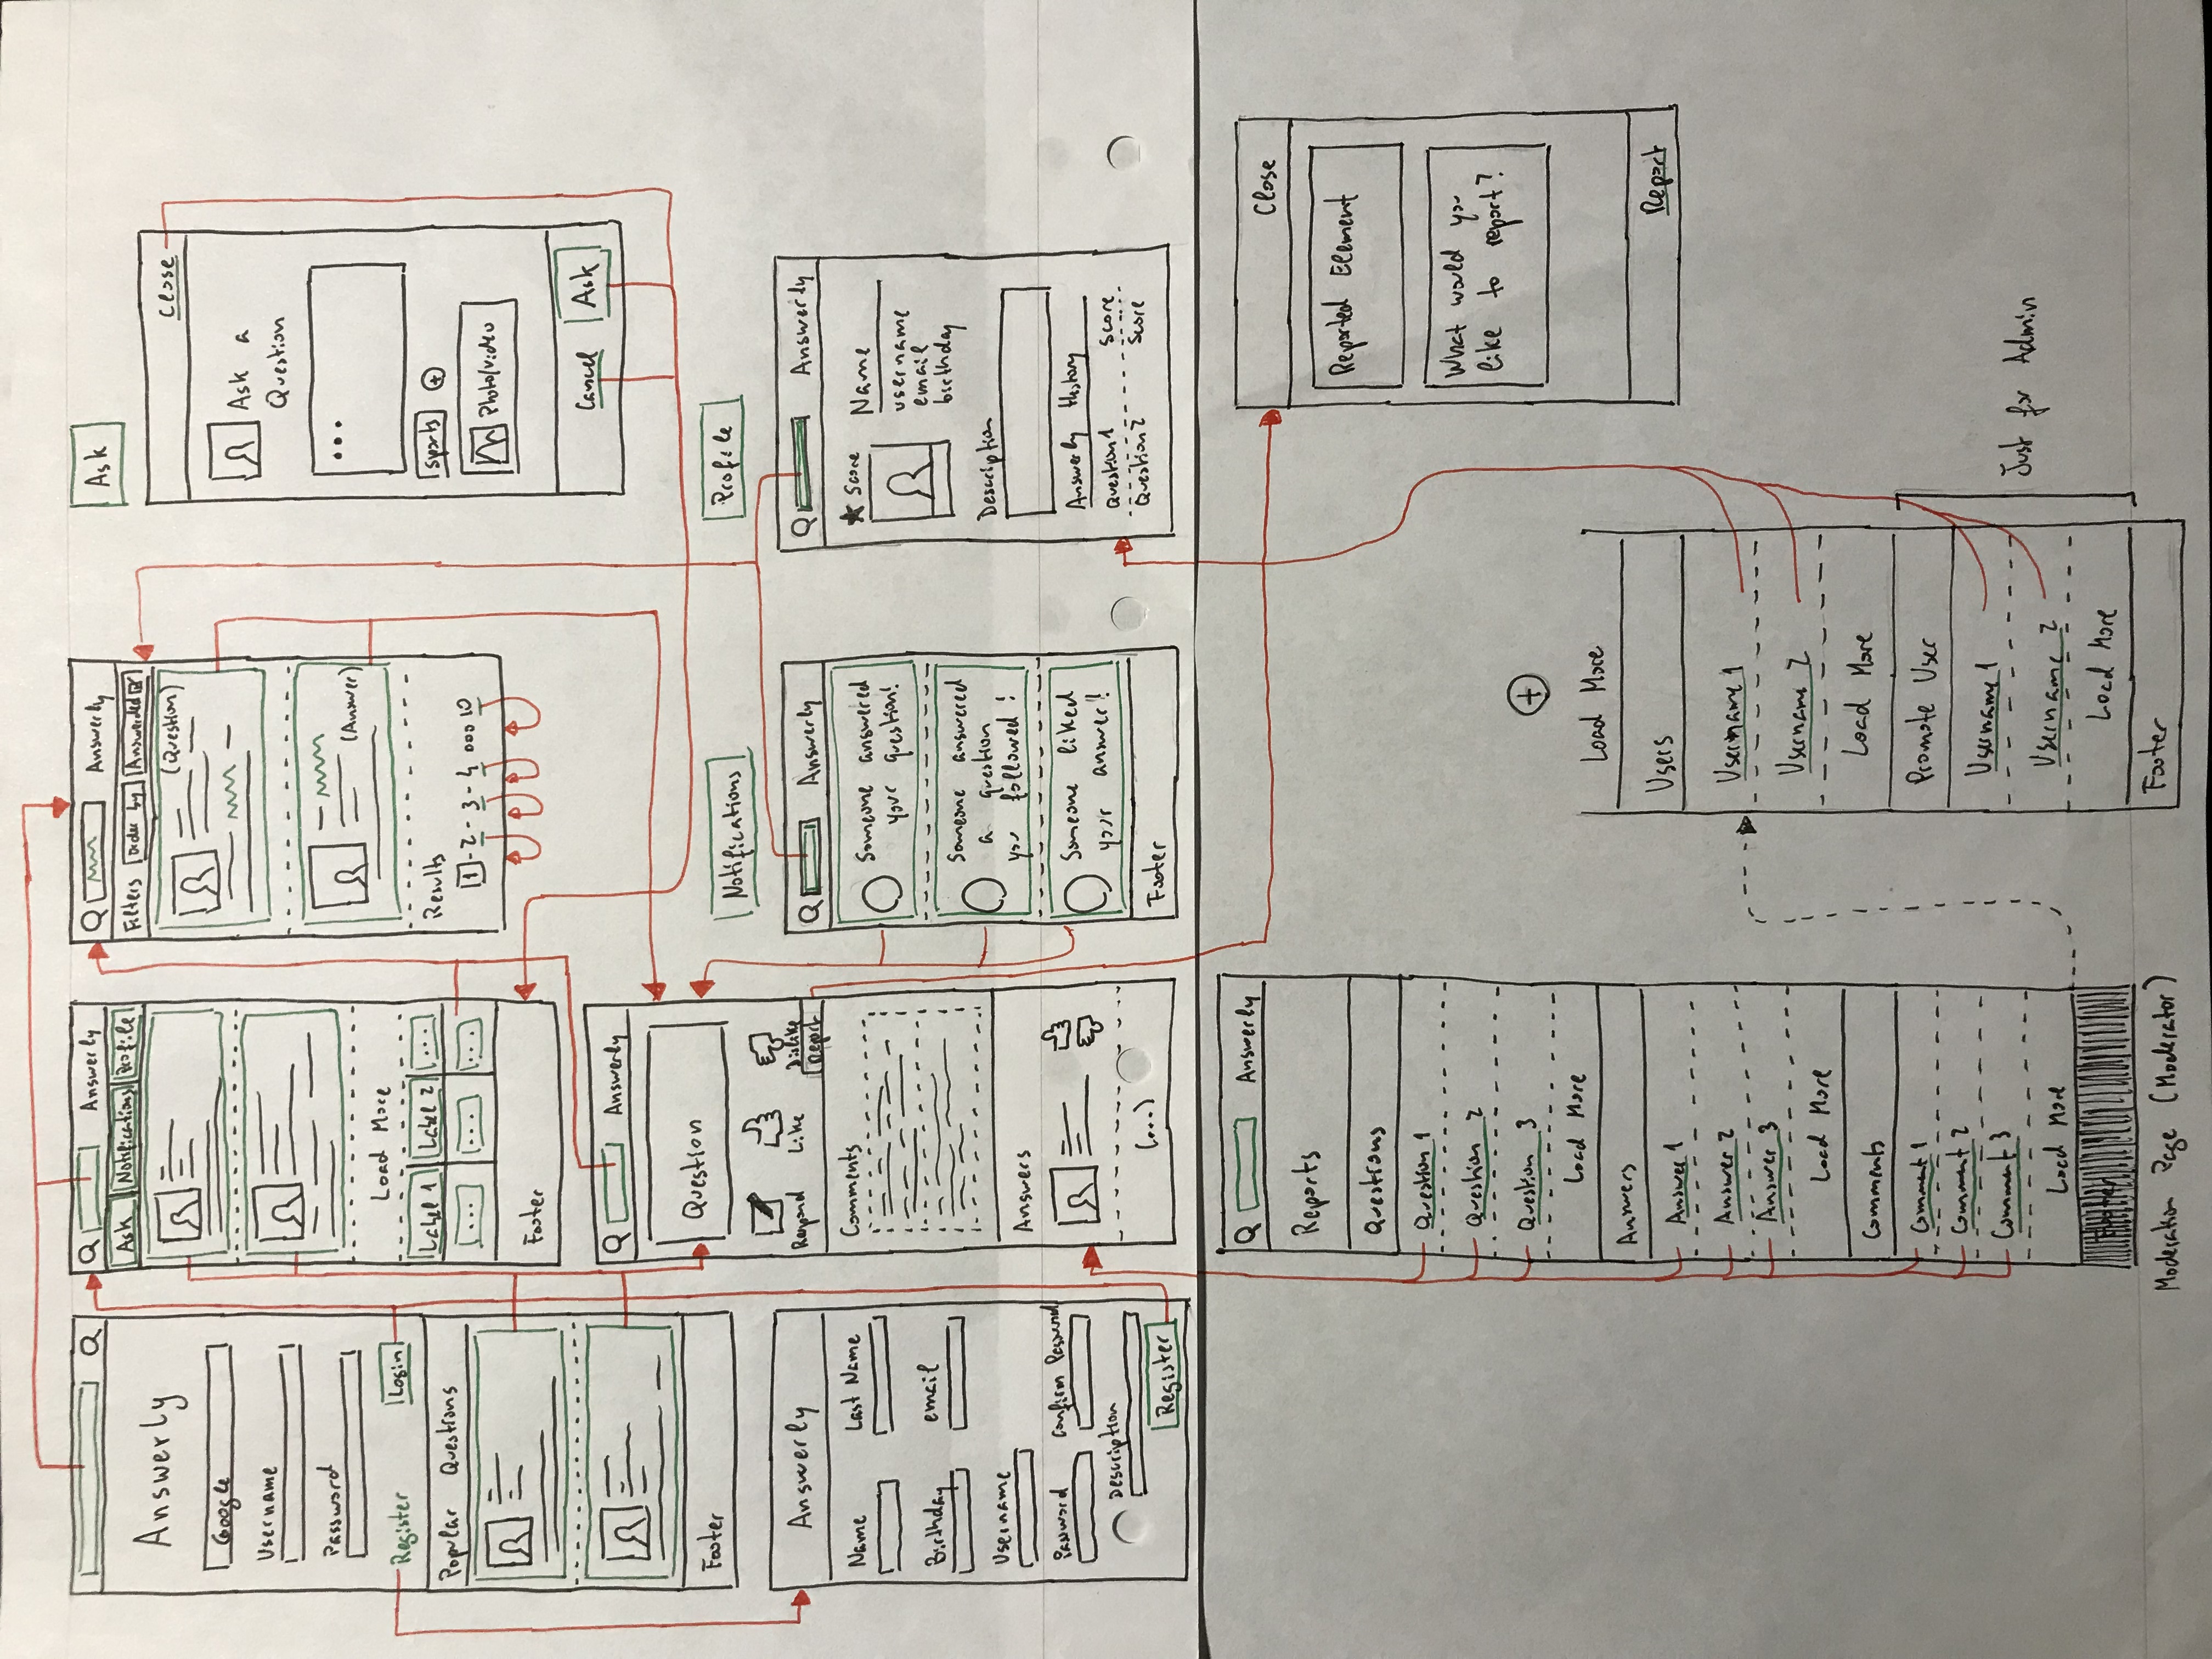 Answerly
Google
Username
Password
Register Login
Popular Questions
Footer
Answerly
Ask Notifications Profile
Load More
Label 1 Label 2 ...
... ... ...
Footer
Answerly
Filters Order by Answerded
(Question)
(Answer)
Results
1 - 2 - 3 - 4 ooo 10
Ask
Close
Ask a
Question
...
Sports +
Photo/video
Cancel Ask
Answerly
Name Last Name
Birthday email
Username
Password Confirm Password
Description
Register
Answerly
Question
Respond Like Dislike
Report
Comments
Answers
(...)
Notifications
Answerly
Someone answered
your question!
Someone answered
a question
you followed!
Someone liked
your answer!
Footer
Profile
Answerly
Score
Name
username
email
birthday
Description
Answerly History
Question1 Score
Question2 Score
Answerly
Reports
Questions
Question 1
Question 2
Question 3
Load More
Answers
Answer 1
Answer 2
Answer 3
Load More
Comments
Comment 1
Comment 2
Comment 3
Load More
Footer
Moderation Page (Moderator)
+
Load More
Users
Username 1
Username 2
Load More
Promote User
Username 1
Username 2
Load More
Footer
Just for Admin
Close
Reported Element
What would you
like to report?
Report